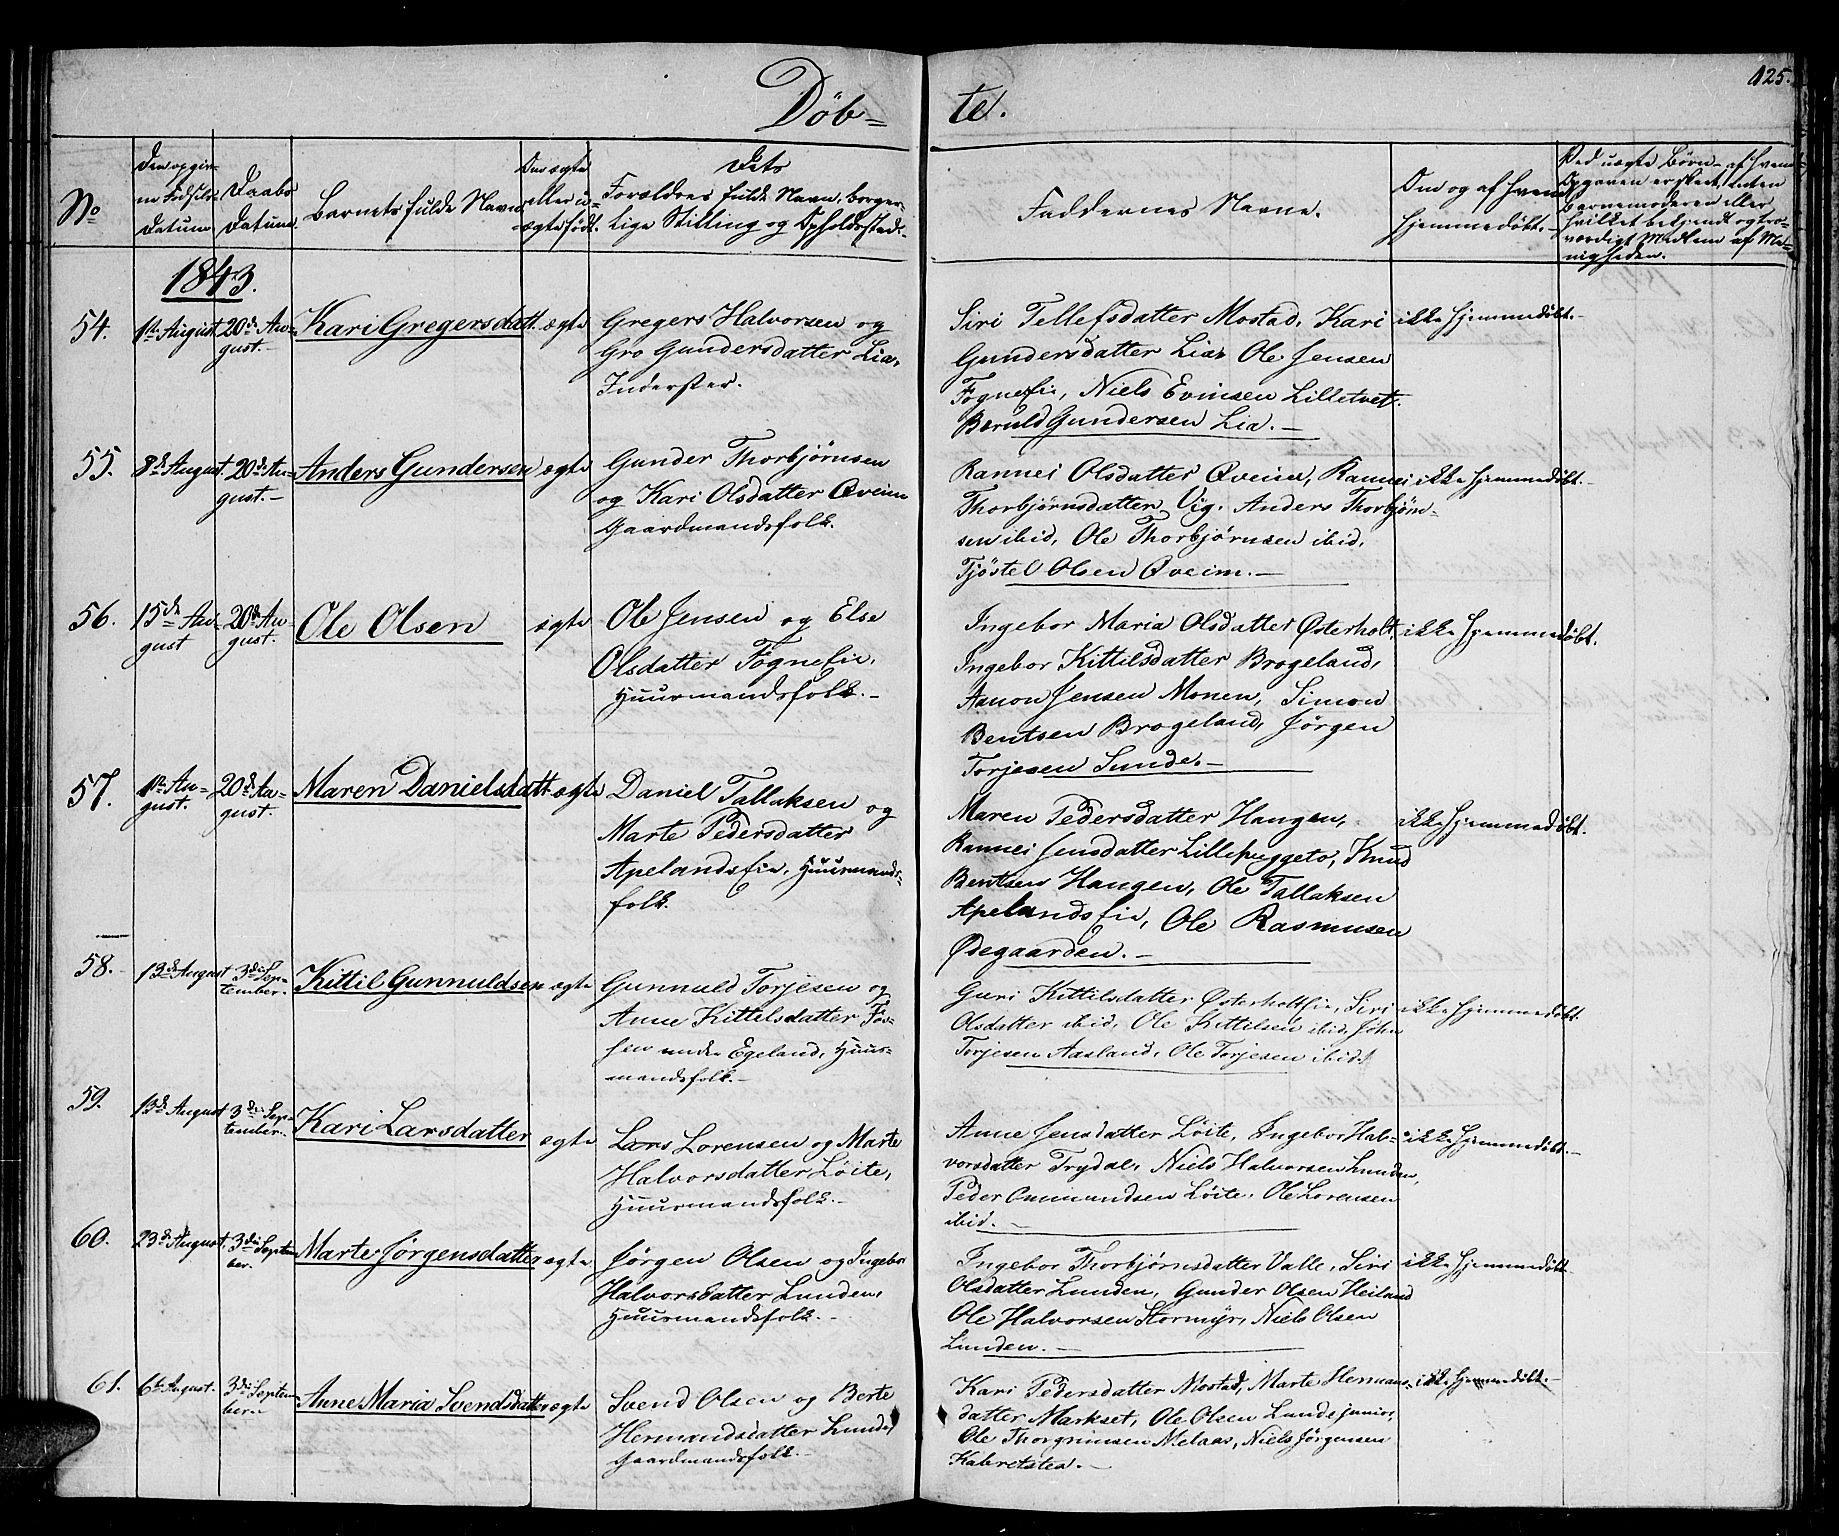 125.
Döb= te.
No
Den opgiv-
ne Fødsels-
Datum
Daabs
Datum.
Barnets fulde Navn
Om ægte
eller u-
ægte født.
Dets
Forældres fulde Navn, borger-
lige Stilling og Opholdssted.
Faddernes Navne.
Om og af hvem
hjemmedøbt.
Ved uægte Børn, af hvem
Opgaven er skeet, enten
Barnemoderen eller
hvilket bekjendt og tro-
værdigt Medlem af Me-
nigheden.
1843.
54.
1ste August
20de Au-
gust.-
Kari Gregersdatt.
ægte
Gregers Halvorsen og
Gro Gundersdatter Lia,
Inderster.
Siri Tellefsdatter Mostad, Kari
Gundersdatter Lia, Ole Jensen
Fognefie, Niels Evinsen Lilletvet.
Bæruld Gundersen Lia.-
ikke hjemmedöbt.-
55.
8de August
20de Au-
gust.-
Anders Gundersen
ægte
Gunder Thorbjørnsen
og Kari Olsdatter Øveim
Gaardmandsfolk.
Rannei Olsdatter Øveim, Rannei
Thorbjørnsdatter Vig. Anders Thorbjørn-
sen ibid, Ole Thorbjørnsen ibid,
Tjöstel Olsen Øveim.-
ikke hjemmedöbt.-
56.
15de Au-
gust
20de Au-
gust.
Ole Olsen
ægte
Ole Jensen og Else
Olsdatter Fognefie,
Huusmandsfolk.-
Ingebor Maria Olsdatter Østerholt
Ingebor Kittilsdatter Brogeland,
Aanon Jensen Monen, Simon
Bentsen Brogeland, Jørgen
Torjesen Sunde.-
ikke hjemmedöbt.
57.
1ste Au-
gust.
20de Au-
gust.
Maren Danielsdatt.
ægte
Daniel Tallaksen og
Marte Pedersdatter
Apelandsfie, Huusmands-
folk.
Maren Pedersdatter Haugen,
Rannei Jensdatter Lillehuggeto, Knud
Bentsen Haugen, Ole Tallaksen
Apelandsfie, Ole Rasmusen
Ødegaarden.-
ikke hjemmedöbt.
58.
13de August
3die Sep-
tember.
Kittil Gunnuldsen
ægte
Gunnuld Torjesen og
Anne Kittelsdatter Fos-
sen under Egeland, Huus-
mandsfolk.-
Guri Kittilsdatter Østerholtfie, Siri
Olsdatter ibid, Ole Kittilsen ibid, John
Torjesen Aasland, Ole Torjesen ibid.
ikke hjemmedöbt.
59.
13de August
3die Sep-
tember.
Kari Larsdatter
ægte
Lars Lorensen og Marte
Halvorsdatter Löite,
Huusmandsfolk.-
Anne Jensdatter Löite, Ingebor Hal-
vorsdatter Trydal, Niels Halvorsen Lunden,
Peder Ommundsen Löite, Ole Lorensen
ibid.-
ikke hjemmedöbt.-
60.
23de August.
3die Septem-
ber.
Marte Jørgensdatter
ægte
Jørgen Olsen og Ingebor
Halvorsdatter Lunden,
Huusmandsfolk.-
Ingebor Thorbjørnsdatter Valle, Siri
Olsdatter Lunden, Gunder Olsen Heiland
Ole Halvorsen Stormyr, Niels Olsen
Lunden.-
ikke hjemmedöbt.
61.
6te August.
3die Septem-
ber.
Anne Maria Svendsdatter
ægte
Svend Olsen og Berte
Hermandsdatter Lunde,
Gaardmandsfolk.-
Kari Pedersdatter Mostad, Marte Hermans-
datter Markset, Ole Olsen Lunde junior,
Ole Thorgrimsen Melaas, Niels Jørgensen
ikke hjemmedöbt.-